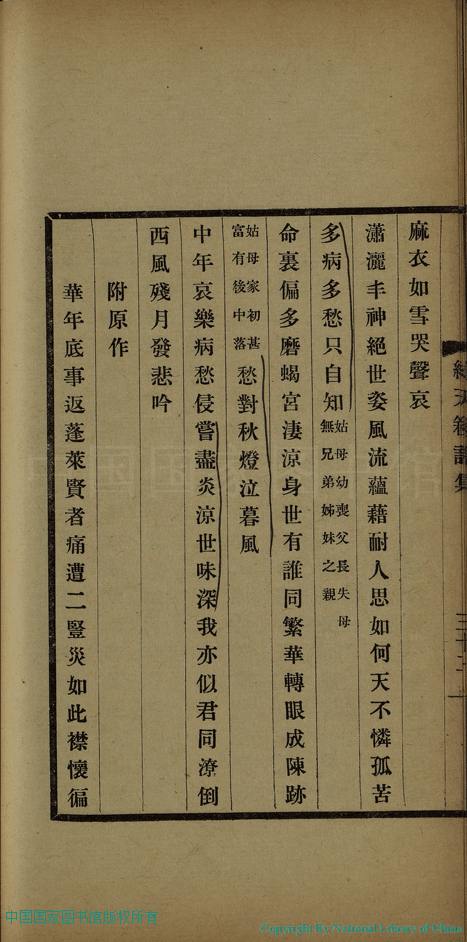 麻衣如雪哭聲哀
瀟灑丰神絕世姿風流蘊藉耐人思如何天不憐孤苦
多病多愁只自知姑母幼喪父長失母
無兄弟姊妹之親
命裏偏多磨蝎宮淒涼身世有誰同繁華轉眼成陳跡
姑母家初甚
富有後中落愁對秋燈泣暮風
中年哀樂病愁侵嘗盡炎涼世味深我亦似君同潦倒
西風殘月發悲吟
附原作
華年底事返蓬萊賢者痛遭二豎災如此襟懷徧
中国国家图书馆版权所有
Copyright By National Library of China